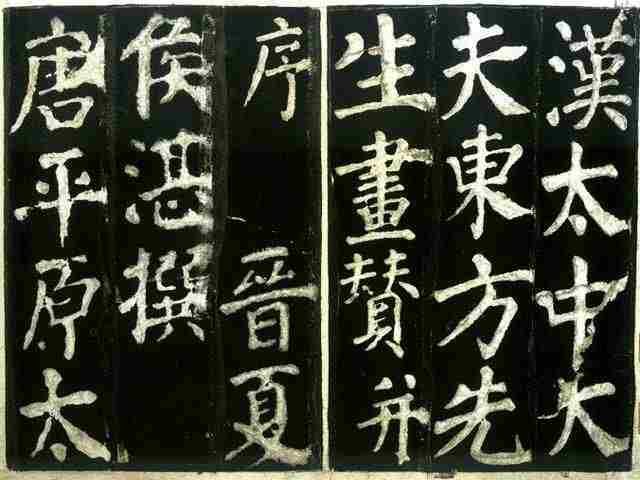 漢太中大
夫東方先
生畫赞并
序 晉夏
侯湛撰
唐平原太